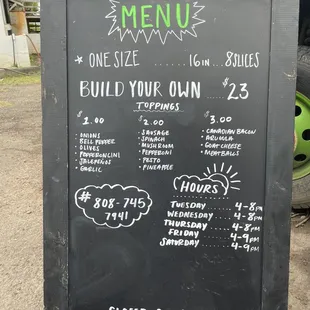 MENU
* ONE SIZE ....... 16 IN ... 8 SLICES
BUILD YOUR OWN ..... $23
TOPPINGS
$1.00
• ONIONS
• BELL PEPPER
• OLIVES
• PEPPERONCINI
• JALEPEÑOS
• GARLIC
$2.00
• SAUSAGE
• SPINACH
• MUSHROOM
• PEPPERONI
• PESTO
• PINEAPPLE
$3.00
• CANADIAN BACON
• ARUGULA
• GOAT CHEESE
• MEATBALLS
# 808-745
7941
HOURS
TUESDAY ..... 4-8PM
WEDNESDAY .... 4-8PM
THURSDAY ..... 4-8PM
FRIDAY ..... 4-9PM
SATURDAY ..... 4-9PM